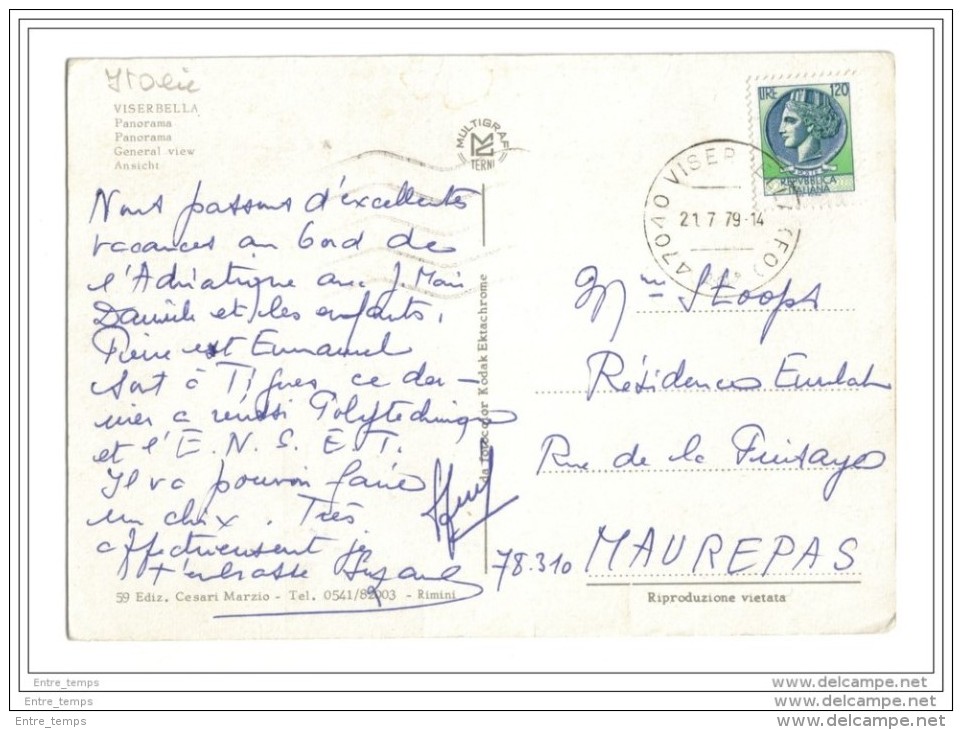 Italie
VISERBELLA
Panorama
Panorama
General view
Ansicht
MULTIGRAF
TERNI
LIRE 120
REPVBBLICA
ITALIANA
47040 VISERBELLA (FO)
21.7.79-14
Nous passons d'excellentes
vacances au bord de
l'Adriatique avec J. Marie
Danièle et les enfants,
Pierre et Emmanuel
sont à Tignes, ce der-
nier a réussi Polytechnique
et l'E.N.S.E.T.
Il va pouvoir faire
un choix. Très
affectueusement je
t'embrasse Suzanne
da fotocolor Kodak Ektachrome
Mme Stoops
Résidences
Rue de la
78.310 MAUREPAS
59 Ediz. Cesari Marzio - Tel. 0541/82003 - Rimini
Riproduzione vietata
Entre_temps www.delcampe.net
Entre_temps www.delcampe.net
Entre_temps www.delcampe.net